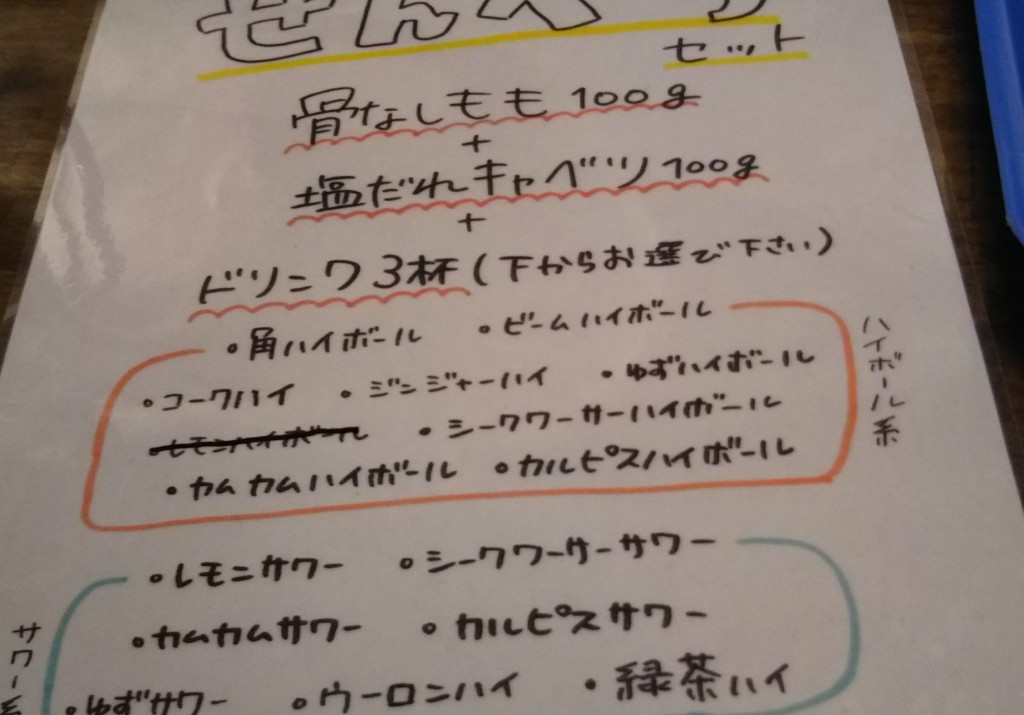 せんべろ
セット
骨なしもも 100g
+
塩だれキャベツ 100g
+
ドリンク 3杯 (下からお選び下さい)
・角ハイボール ・ビームハイボール
・コークハイ ・ジンジャーハイ ・ゆずハイボール
・シークワーサーハイボール
・カムカムハイボール ・カルピスハイボール
ハイボール系
・レモンサワー ・シークワーサーサワー
・カムカムサワー ・カルピスサワー
・ゆずサワー ・ウーロンハイ ・緑茶ハイ
サワー系